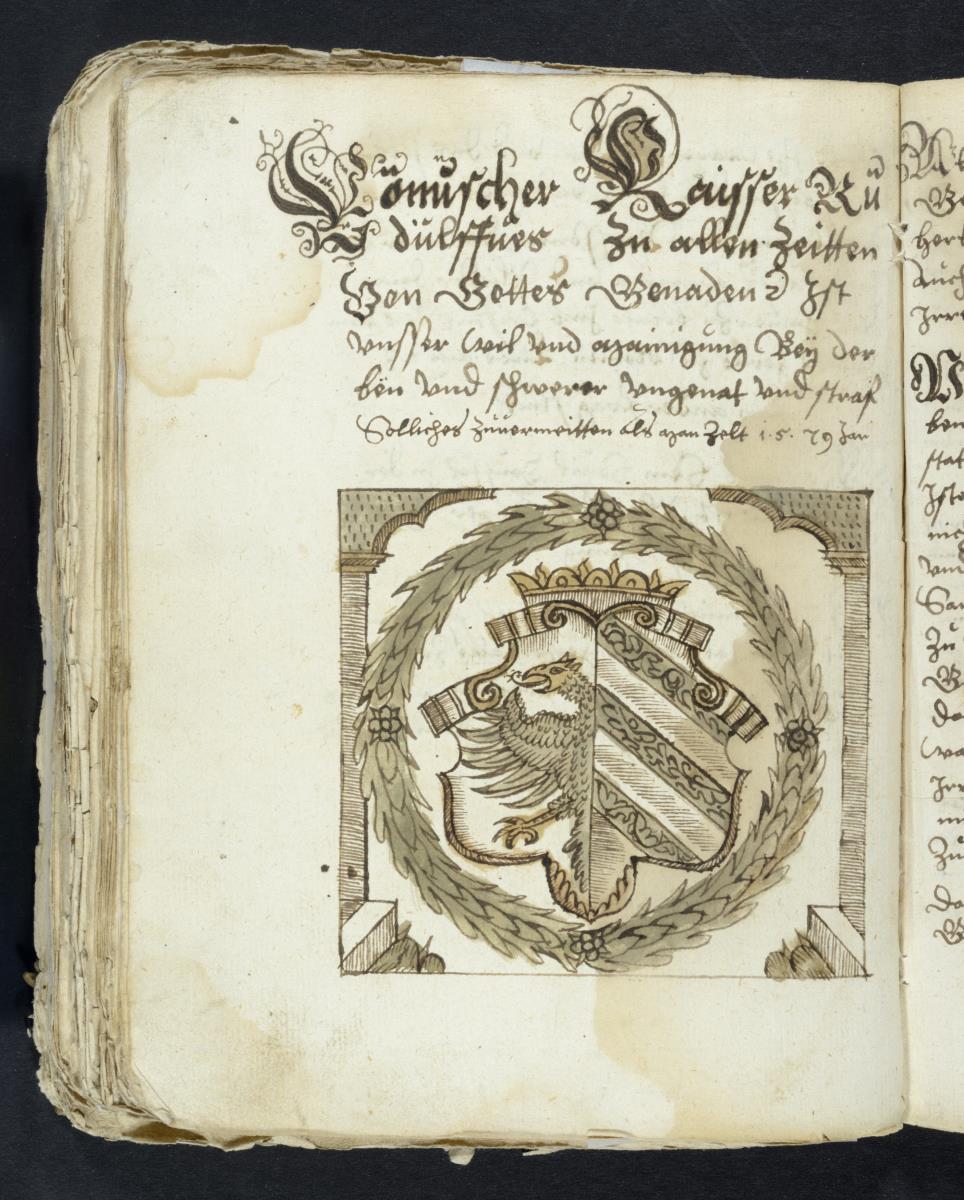 Römüscher Kaisser Rŭ
dŭlffŭes Zu allen Zeitten
Von Gottes Genaden Ist
vnsser wil vnd mainigung Beÿ der
ben vnd schwerer vngenat vnd straf
Solliches zuuermeitten als man zelt 1.5.79 Jar
her
auch
ben
stat
Zu